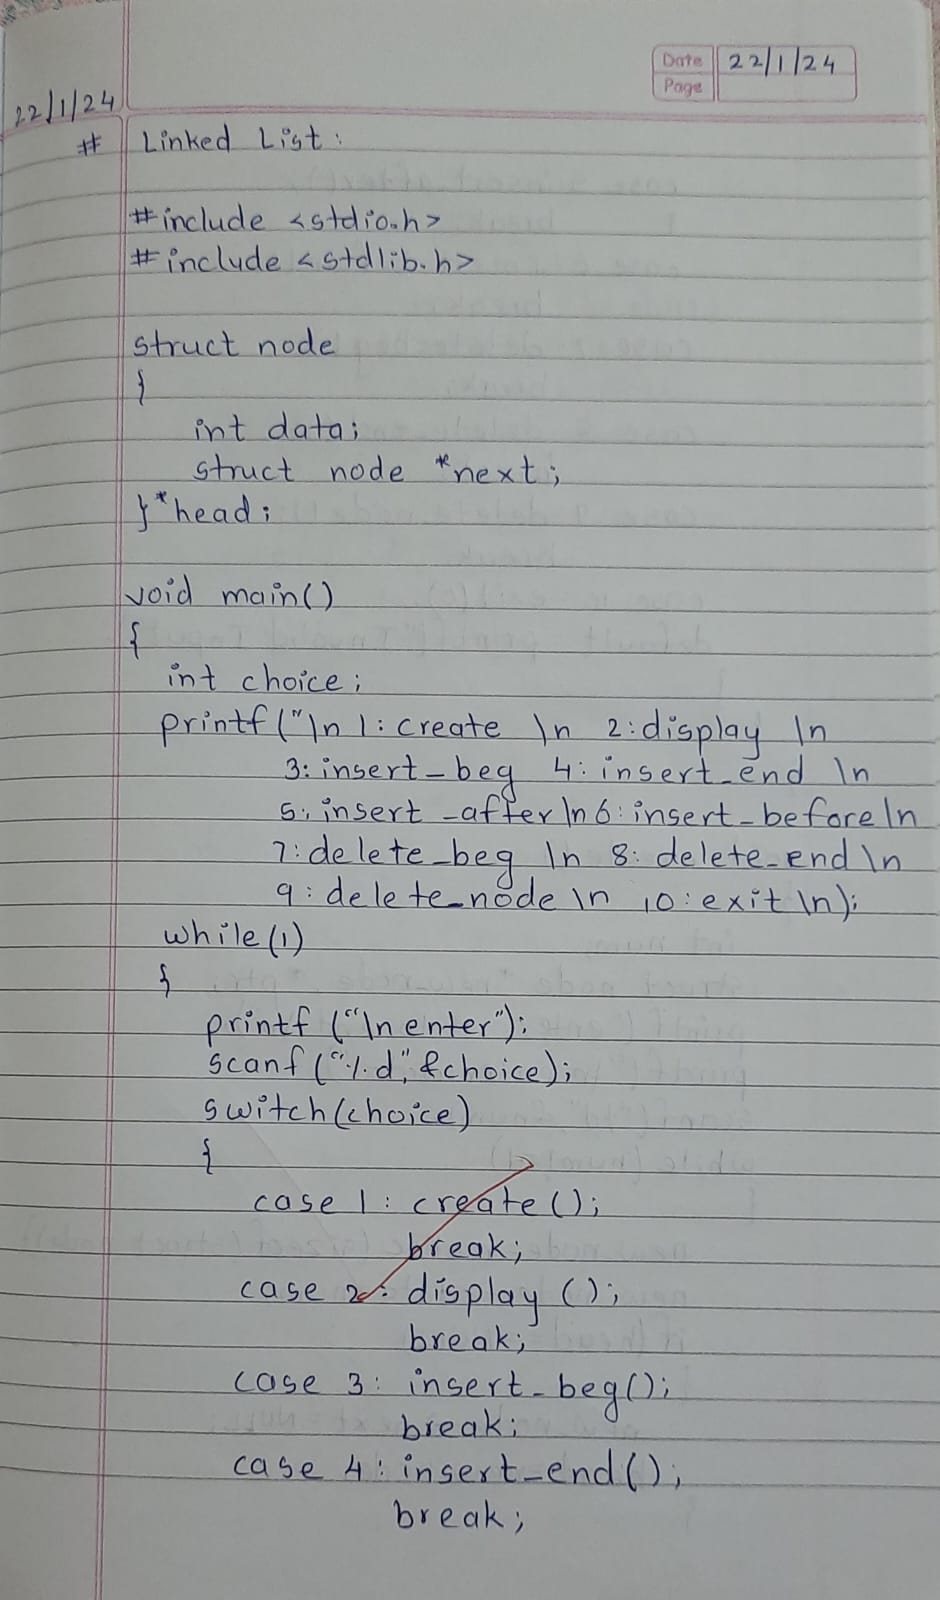 Date 22/1/24
Page
22/1/24
# Linked List:
#include <stdio.h>
#include <stdlib.h>
struct node
{
int data;
struct node *next;
}*head;
void main()
{
int choice;
printf("\n 1: create \n 2:display \n
3: insert_beg 4: insert_end \n
5: insert_after \n 6: insert_before \n
7: delete_beg \n 8: delete_end \n
9: delete_node \n 10: exit \n);
while(1)
{
printf ("\n enter");
scanf ("%d", &choice);
switch(choice)
{
case 1: create();
break;
case 2: display ();
break;
case 3: insert_beg();
break;
case 4: insert_end();
break;